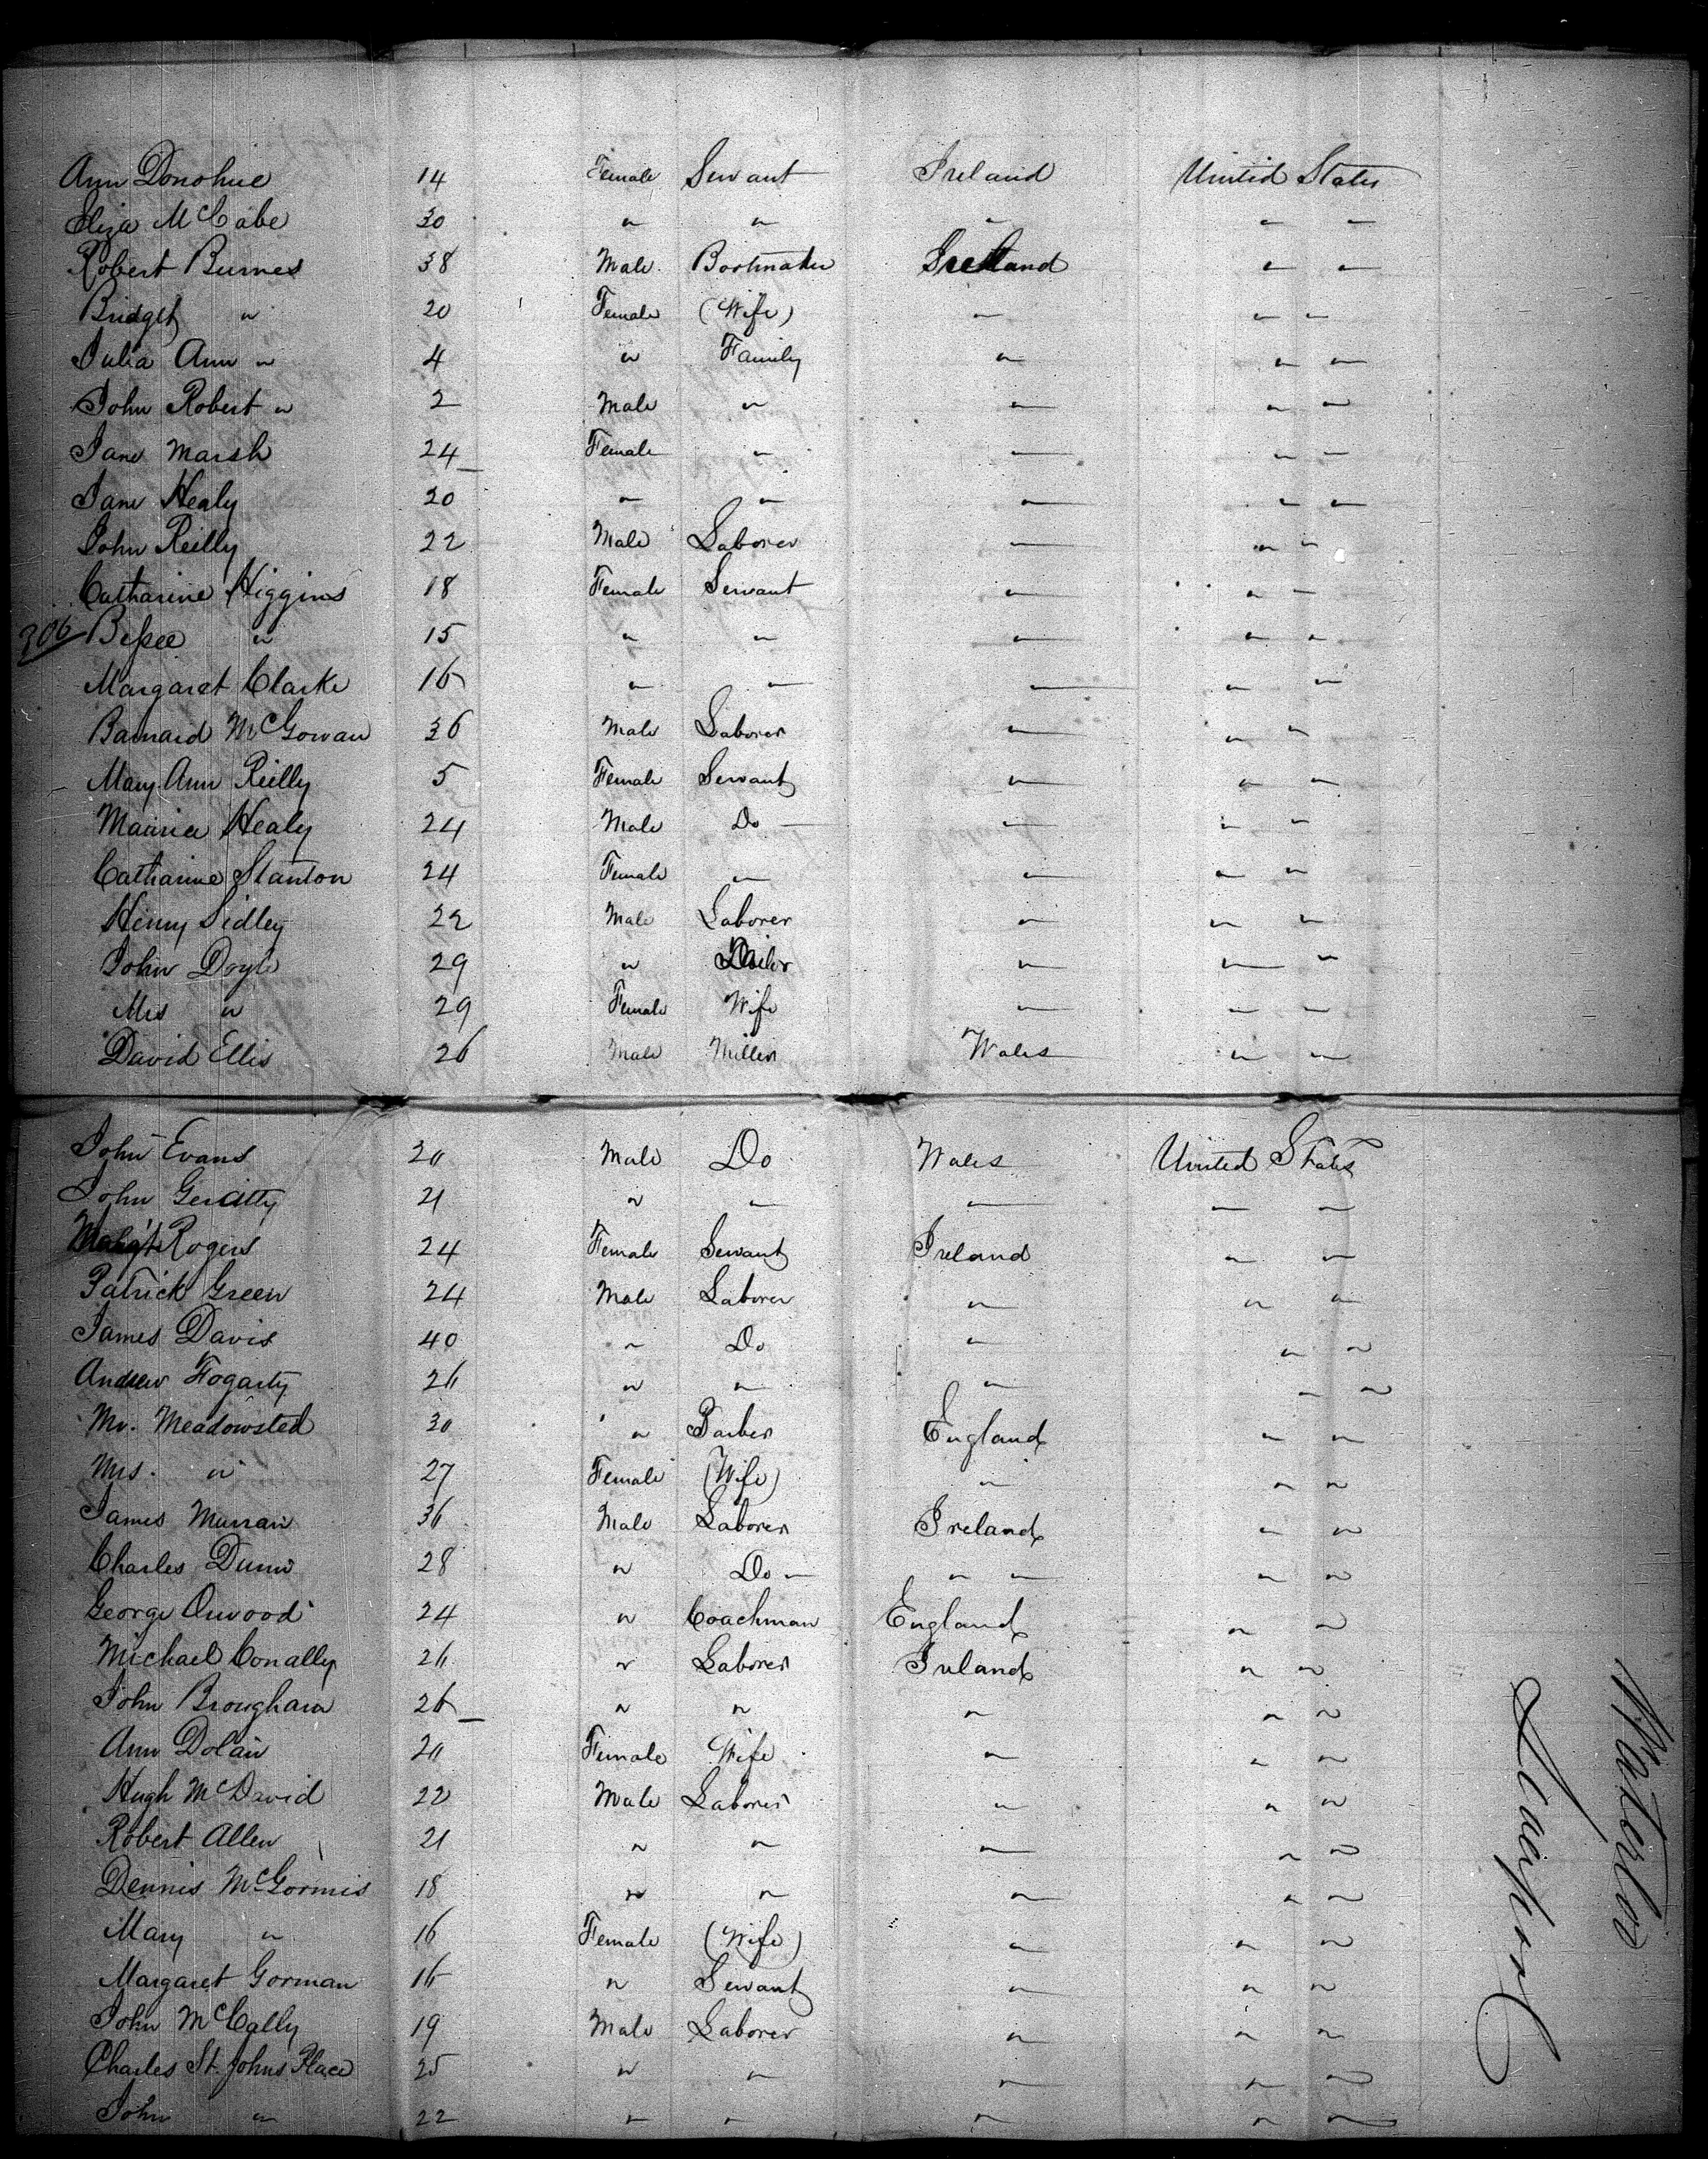 Ann Donohue 14 Female Servant Ireland United States
Eliza McCabe 30 " " " " "
Robert Burnes 38 Male Bootmaker Ireland " "
Bridget " 20 Female (Wife) " " "
Julia Ann " 4 " Family " " "
John Robert " 2 Male " " " "
Jane Marsh 24 Female " " " "
Jane Healy 20 " " " " "
John Reilly 22 Male Laborer " " "
Catharine Higgins 18 Female Servant " " "
306 Bessee " 15 " " " " "
Margaret Clarke 16 " " " " "
Barnard McGowan 36 Male Laborer " " "
Mary Ann Reilly 5 Female Servant " " "
Maurice Healy 24 Male Do " " "
Catharine Stanton 24 Female " " " "
Henry Sidley 22 Male Laborer " " "
John Doyle 29 " " " "
Mrs " 29 Female Wife " " "
David Ellis 26 Male Miller Wales " "
John Evans 20 Male Do Wales United States
John Geratty 21 " " " " "
Margt Rogers 24 Female Servant Ireland " "
Patrick Green 24 Male Laborer " " "
James Davis 40 " Do " " "
Andrew Fogarty 26 " " " " "
Mr. Meadowsted 30 " Barber England " "
Mrs. " 27 Female (Wife) " " "
James Murrain 36 Male Laborer Ireland " "
Charles Dunn 28 " Do " " " "
George Orwood 24 " Coachman England " "
Michael Conally 26 " Laborer Ireland " "
John Brougham 26 " " " " "
Ann Dolan 20 Female Wife " " "
Hugh McDavid 22 Male Laborer " " "
Robert Allen 21 " " " " "
Dennis McGormis 18 " " " " "
Mary " 16 Female (Wife) " " "
Margaret Gorman 16 " Servant " " "
John McCally 19 Male Laborer " " "
Charles St. Johns Place 25 " " " " "
John " 22 " " " " "
Waterloo
Liverpool